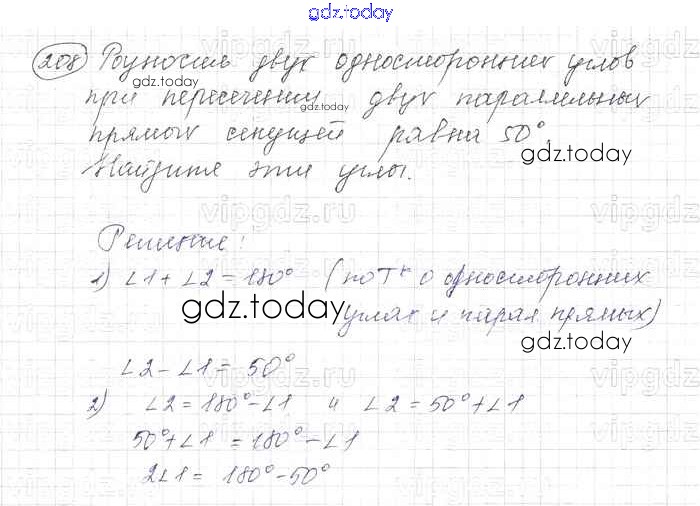 gdz.today
208 Разность двух односторонних углов
gdz.today
gdz.today
при пересечении двух параллельных
прямых секущей равна 50°.
gdz.today
Найдите эти углы.
vipgdz.ru
Решение:
1) ∠1 + ∠2 = 180° (по Т о односторонних
gdz.today
gdz.today
углах и парал прямых)
∠2 - ∠1 = 50°
2) ∠2 = 180° - ∠1 и ∠2 = 50° + ∠1
50° + ∠1 = 180° - ∠1
2∠1 = 180° - 50°